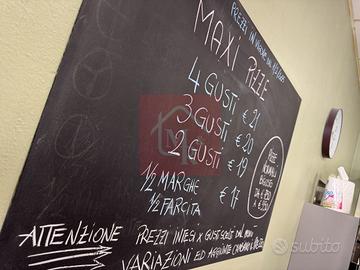 PREZZI IN VIGORE DAL
MAXI PIZZE
4 GUSTI € 21
3 GUSTI € 20
2 GUSTI € 19
1/2 MARGHE € 17
1/2 FARCITA
PIZZE
NORMALI
DA € 
A €
ATTENZIONE PREZZI INTESI X GUSTI SCELTI DAL MENU
VARIAZIONI ED AGGIUNTE CAMBIANO IL PREZZO
subito